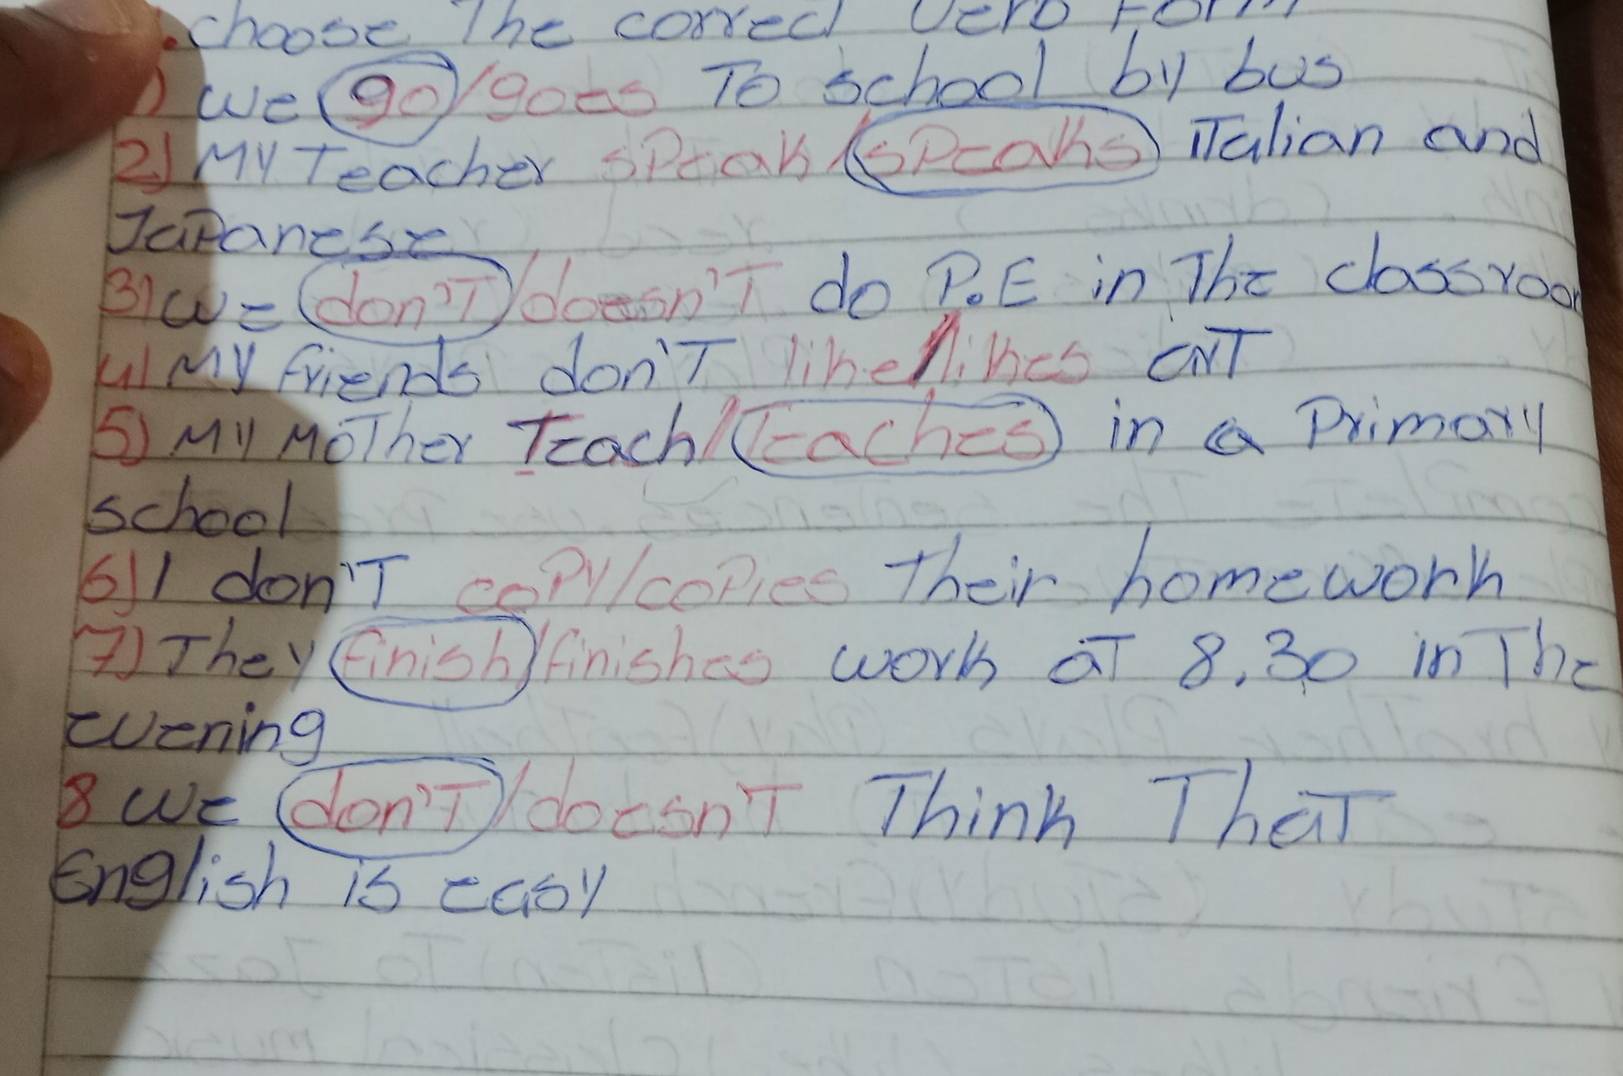 .choose The correct Verb Form
1) we go/goes To school by bus
2) MY Teacher sPeak/sPeaks iTalian and
JaPanese
3) we don'T/doesn'T do P.E in The classroom
4) MY friends don'T like/likes arT
5) MY MoTher Teach/Teaches in a Primary
school
6) I don'T coPY/coPies Their homework
7) They finish/finishes work aT 8.30 in The
evening
8 we don'T/doesn'T Think ThaT
English is easy